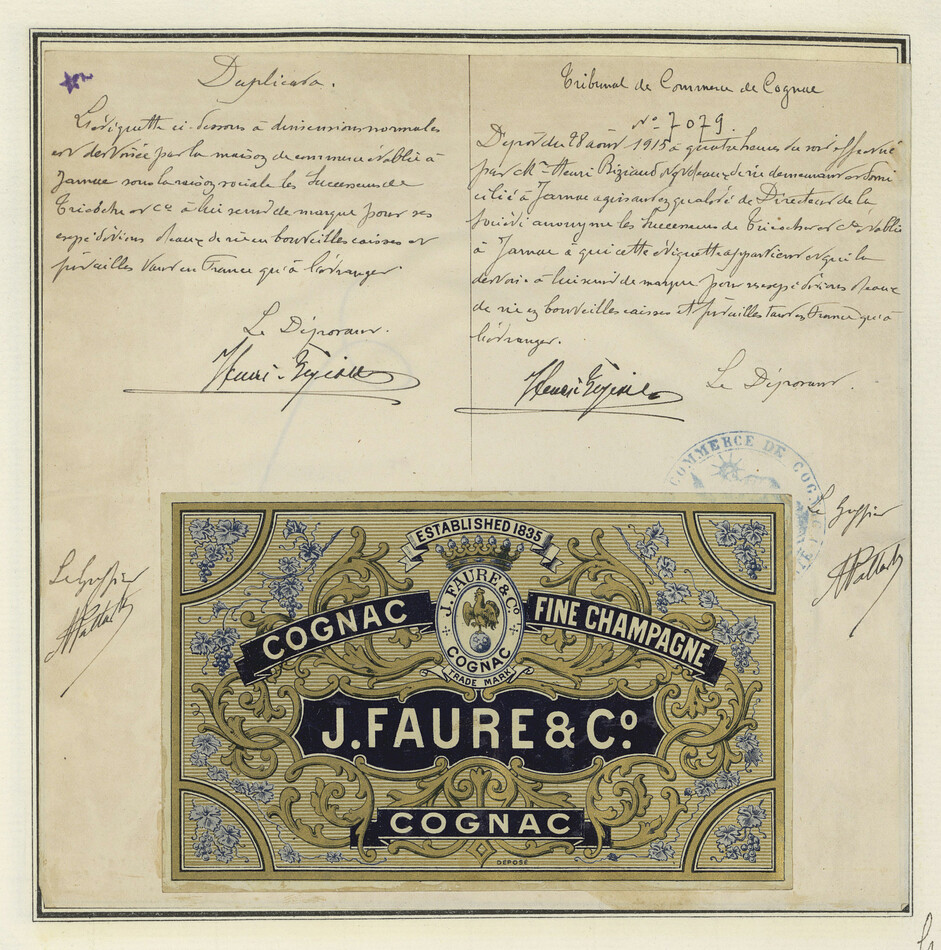 Duplicata.
L'étiquette ci-dessous à dimensions normales
est destinée par la maison de commerce établie à
Jarnac sous la raison sociale les Successeurs de
Tricoche et Cie à lui servir de marque pour ses
expéditions d'eaux de vie en bouteilles caisses et
futailles tant en France qu'à l'étranger.
Le Déposant.
Tribunal de Commerce de Cognac
No 7079.
Dépôt du 28 août 1915 à quatre heures du soir effectué
par Mr Henri Negt d'eaux de vie demeurant et domi
cilié à Jarnac agissant en qualité de Directeur de la
Société anonyme les Successeurs de Tricoche et Cie établie
à Jarnac à qui cette étiquette appartient et qui la
destine à lui servir de marque pour ses expéditions d'eaux
de vie en bouteilles caisses et futailles tant en France qu'à
l'étranger.
Le Déposant.
COMMERCE DE COGN
Le Greffier
Le Greffier
ESTABLISHED 1835
J. FAURE & Co
COGNAC
TRADE MARK
COGNAC
FINE CHAMPAGNE
J. FAURE & Co.
COGNAC
DÉPOSÉ